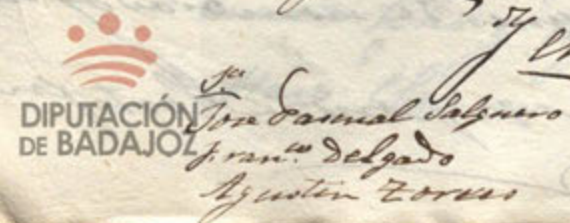 DIPUTACIÓN
DE BADAJOZ
Jose Pascual Salguero
Fran.co Delgado
Agustin